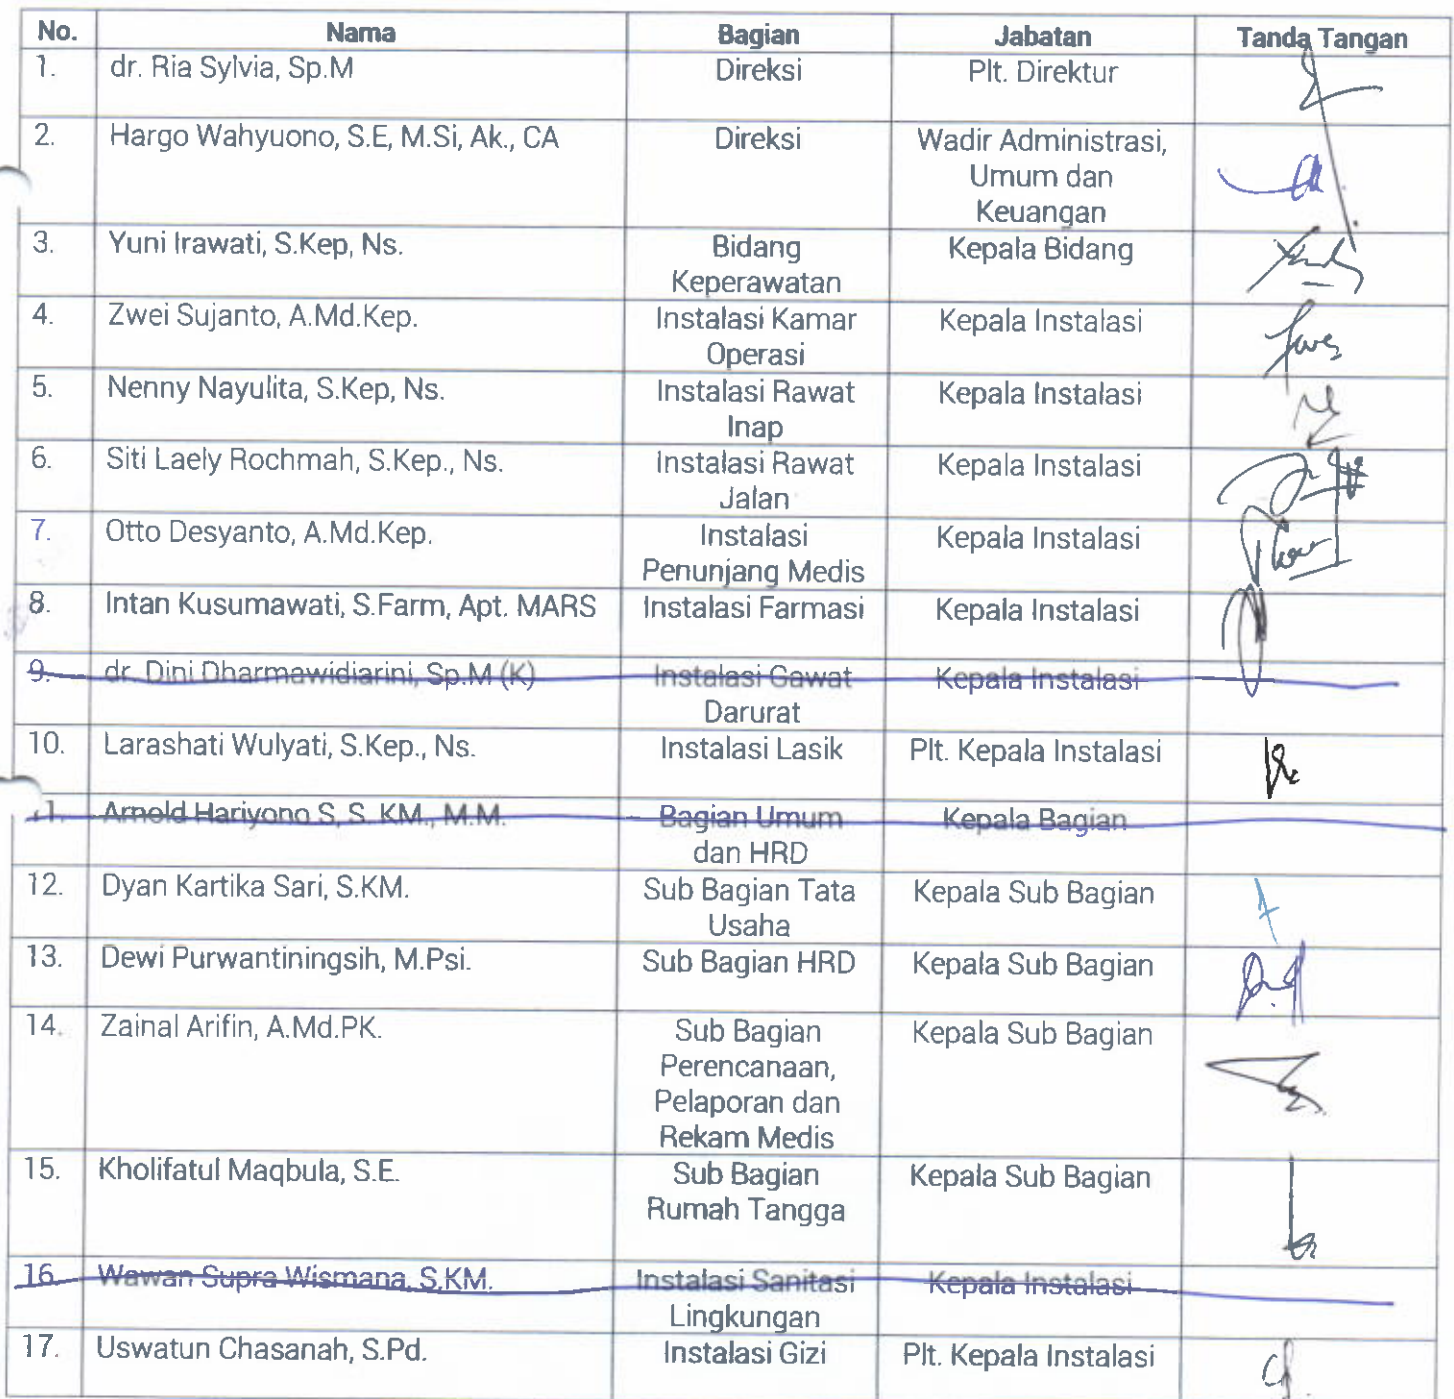 No. Nama Bagian Jabatan Tanda Tangan
1. dr. Ria Sylvia, Sp.M Direksi Plt. Direktur
2. Hargo Wahyuono, S.E, M.Si, Ak., CA Direksi Wadir Administrasi,
Umum dan
Keuangan
3. Yuni Irawati, S.Kep, Ns. Bidang Kepala Bidang
Keperawatan
4. Zwei Sujanto, A.Md.Kep. Instalasi Kamar Kepala Instalasi
Operasi
5. Nenny Nayulita, S.Kep, Ns. Instalasi Rawat Kepala Instalasi
Inap
6. Siti Laely Rochmah, S.Kep., Ns. Instalasi Rawat Kepala Instalasi
Jalan
7. Otto Desyanto, A.Md.Kep. Instalasi Kepala Instalasi
Penunjang Medis
8. Intan Kusumawati, S.Farm, Apt. MARS Instalasi Farmasi Kepala Instalasi
9. dr. Dini Dharmawidiarini, Sp.M (K) Instalasi Gawat Kepala Instalasi
Darurat
10. Larashati Wulyati, S.Kep., Ns. Instalasi Lasik Plt. Kepala Instalasi
11. Arnold Hariyono S, S. KM., M.M. Bagian Umum Kepala Bagian
dan HRD
12. Dyan Kartika Sari, S.KM. Sub Bagian Tata Kepala Sub Bagian
Usaha
13. Dewi Purwantiningsih, M.Psi. Sub Bagian HRD Kepala Sub Bagian
14. Zainal Arifin, A.Md.PK. Sub Bagian Kepala Sub Bagian
Perencanaan,
Pelaporan dan
Rekam Medis
15. Kholifatul Maqbula, S.E. Sub Bagian Kepala Sub Bagian
Rumah Tangga
16. Wawan Supra Wismana, S.KM. Instalasi Sanitasi Kepala Instalasi
Lingkungan
17. Uswatun Chasanah, S.Pd. Instalasi Gizi Plt. Kepala Instalasi